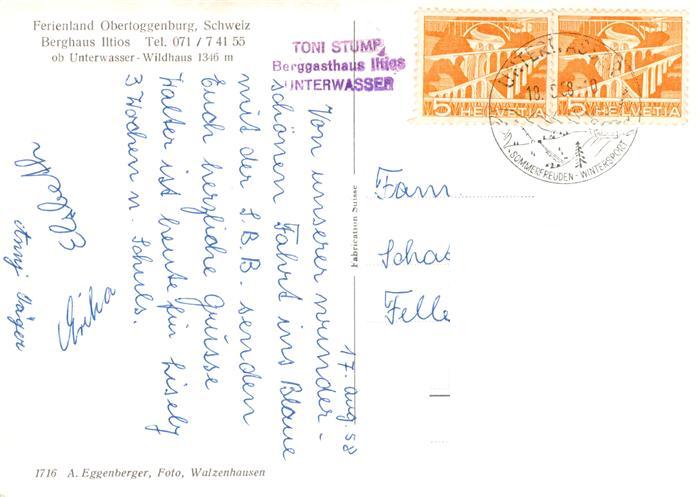 Ferienland Obertoggenburg, Schweiz
Berghaus Iltios Tel. 071 / 7 41 55
ob Unterwasser - Wildhaus 1346 m
TONI STUMP
Berggasthaus Iltios
UNTERWASSER
5 HELVETIA
5 HELVETIA
UNTERWASSER
SOMMERFREUDEN - WINTERSPORT
17. Aug. 58
Von unserer wunder-
schönen Fahrt ins Blaue
mit der S.B.B. senden
Euch herzliche Grüsse
Walter ist heute für
3 Wochen n. Schuls.
Erika
Anny Jäger
Fam
Scha
Felle
Fabrication Suisse
1716 A. Eggenberger, Foto, Walzenhausen